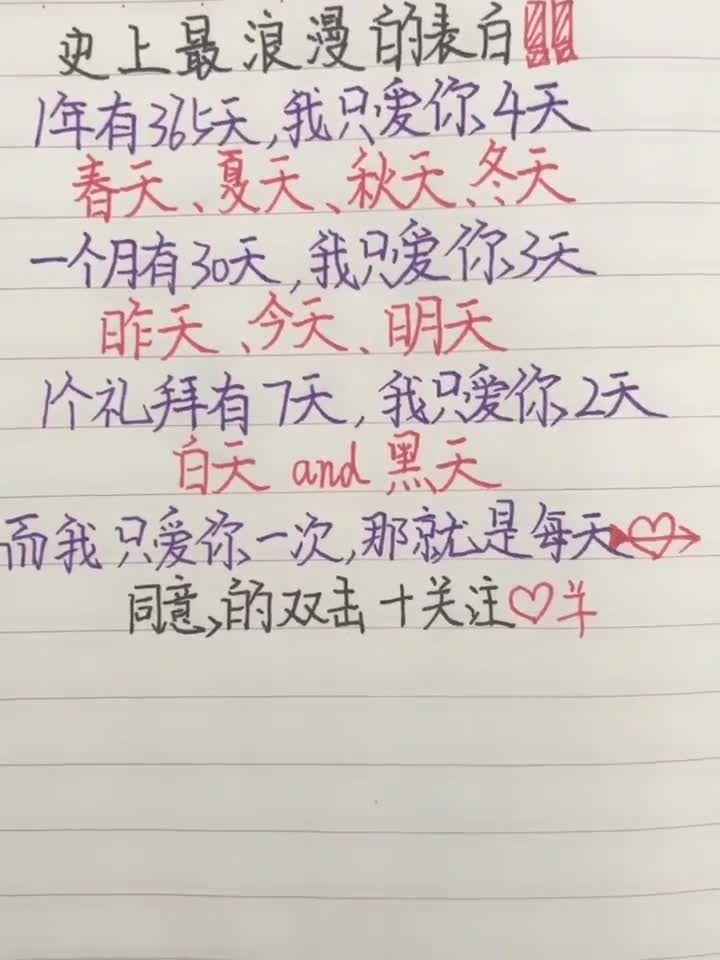 史上最浪漫的表白!!
1年有365天,我只爱你4天
春天、夏天、秋天、冬天
一个月有30天,我只爱你3天
昨天、今天、明天
1个礼拜有7天,我只爱你2天
白天 and 黑天
而我只爱你一次,那就是每天
同意的双击+关注♡